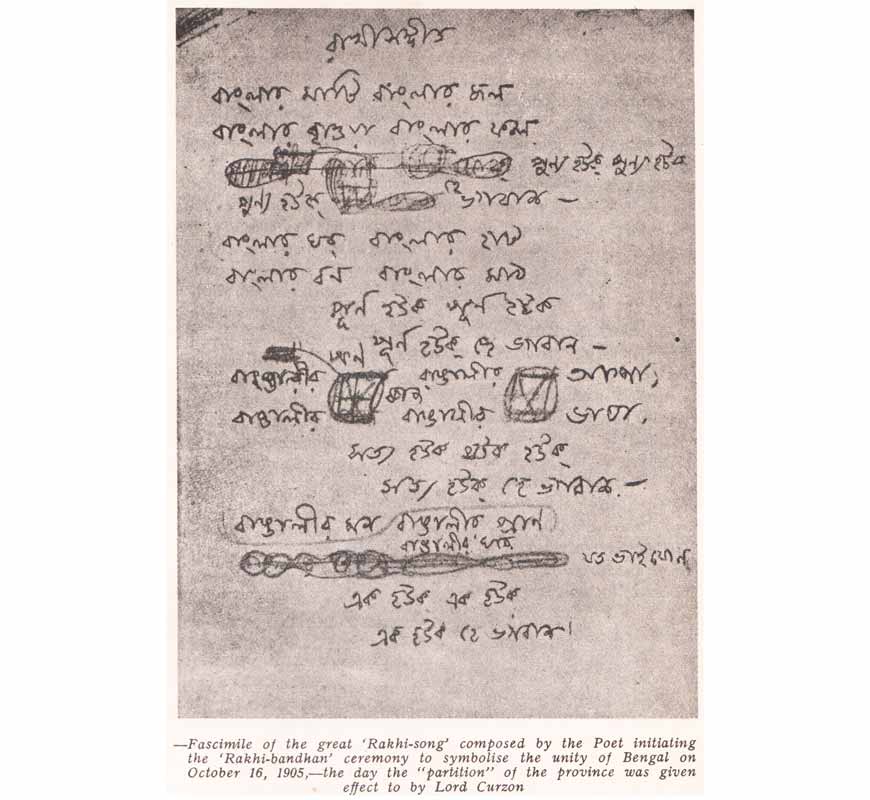 রাখীসঙ্গীত
বাংলার মাটি বাংলার জল
বাংলার হাওয়া বাংলার ফল
পুণ্য হউক্ পুণ্য হউক
পুণ্য হউক্ হে ভগবান –
বাংলার ঘর্ বাংলার হাট
বাংলার বন বাংলার মাঠ
পূর্ণ হউক পূর্ণ হউক
পূর্ণ হউক্ হে ভগবান –
বাঙালীর পণ বাঙালীর আশা,
বাঙালীর কাজ বাঙালীর ভাষা,
সত্য হউক সত্য হউক্
সত্য হউক্ হে ভগবান –
বাঙালীর মন বাঙালীর প্রাণ
বাঙালীর ঘরে যত ভাইবোন্
এক হউক এক হউক
এক হউক হে ভগবান।
—Fascimile of the great 'Rakhi-song' composed by the Poet initiating
the 'Rakhi-bandhan' ceremony to symbolise the unity of Bengal on
October 16, 1905,—the day the "partition" of the province was given
effect to by Lord Curzon